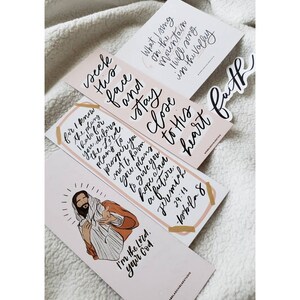 What I sing
on the
mountain
I will sing
in the valley
seek
His
face
and
stay
close
to His
heart
faith
For I know
the plans
I have for
you, declares
the Lord
plans to
prosper you
not to harm
you, plans
to give you
hope and
a future
Jeremiah
29:11
I'm the Lord,
your God